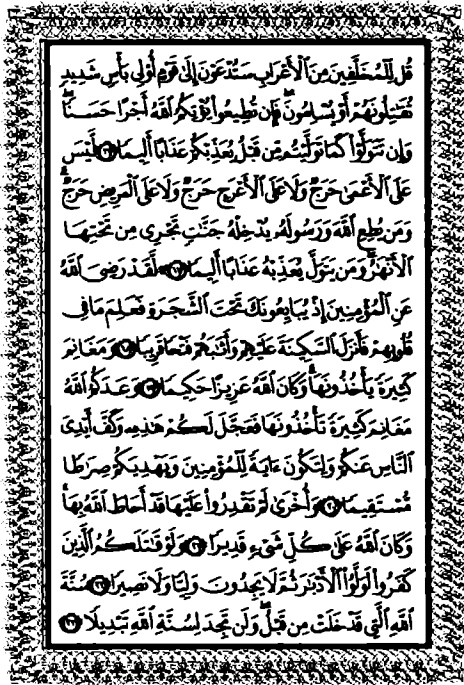 قُل لِّلْمُخَلَّفِينَ مِنَ ٱلْأَعْرَابِ سَتُدْعَوْنَ إِلَىٰ قَوْمٍ أُو۟لِى بَأْسٍ شَدِيدٍ
تُقَٰتِلُونَهُمْ أَوْ يُسْلِمُونَ ۖ فَإِن تُطِيعُوا۟ يُؤْتِكُمُ ٱللَّهُ أَجْرًا حَسَنًا ۖ
وَإِن تَتَوَلَّوْا۟ كَمَا تَوَلَّيْتُم مِّن قَبْلُ يُعَذِّبْكُمْ عَذَابًا أَلِيمًا ١٦ لَّيْسَ
عَلَى ٱلْأَعْمَىٰ حَرَجٌ وَلَا عَلَى ٱلْأَعْرَجِ حَرَجٌ وَلَا عَلَى ٱلْمَرِيضِ حَرَجٌ ۗ
وَمَن يُطِعِ ٱللَّهَ وَرَسُولَهُۥ يُدْخِلْهُ جَنَّٰتٍ تَجْرِى مِن تَحْتِهَا
ٱلْأَنْهَٰرُ ۖ وَمَن يَتَوَلَّ يُعَذِّبْهُ عَذَابًا أَلِيمًا ١٧ لَّقَدْ رَضِىَ ٱللَّهُ
عَنِ ٱلْمُؤْمِنِينَ إِذْ يُبَايِعُونَكَ تَحْتَ ٱلشَّجَرَةِ فَعَلِمَ مَا فِى
قُلُوبِهِمْ فَأَنزَلَ ٱلسَّكِينَةَ عَلَيْهِمْ وَأَثَٰبَهُمْ فَتْحًا قَرِيبًا ١٨ وَمَغَانِمَ
كَثِيرَةً يَأْخُذُونَهَا ۗ وَكَانَ ٱللَّهُ عَزِيزًا حَكِيمًا ١٩ وَعَدَكُمُ ٱللَّهُ
مَغَانِمَ كَثِيرَةً تَأْخُذُونَهَا فَعَجَّلَ لَكُمْ هَٰذِهِۦ وَكَفَّ أَيْدِىَ
ٱلنَّاسِ عَنكُمْ وَلِتَكُونَ ءَايَةً لِّلْمُؤْمِنِينَ وَيَهْدِيَكُمْ صِرَٰطًا
مُّسْتَقِيمًا ٢٠ وَأُخْرَىٰ لَمْ تَقْدِرُوا۟ عَلَيْهَا قَدْ أَحَاطَ ٱللَّهُ بِهَا ۚ
وَكَانَ ٱللَّهُ عَلَىٰ كُلِّ شَىْءٍ قَدِيرًا ٢١ وَلَوْ قَٰتَلَكُمُ ٱلَّذِينَ
كَفَرُوا۟ لَوَلَّوُا۟ ٱلْأَدْبَٰرَ ثُمَّ لَا يَجِدُونَ وَلِيًّا وَلَا نَصِيرًا ٢٢ سُنَّةَ
ٱللَّهِ ٱلَّتِى قَدْ خَلَتْ مِن قَبْلُ ۖ وَلَن تَجِدَ لِسُنَّةِ ٱللَّهِ تَبْدِيلًا ٢٣